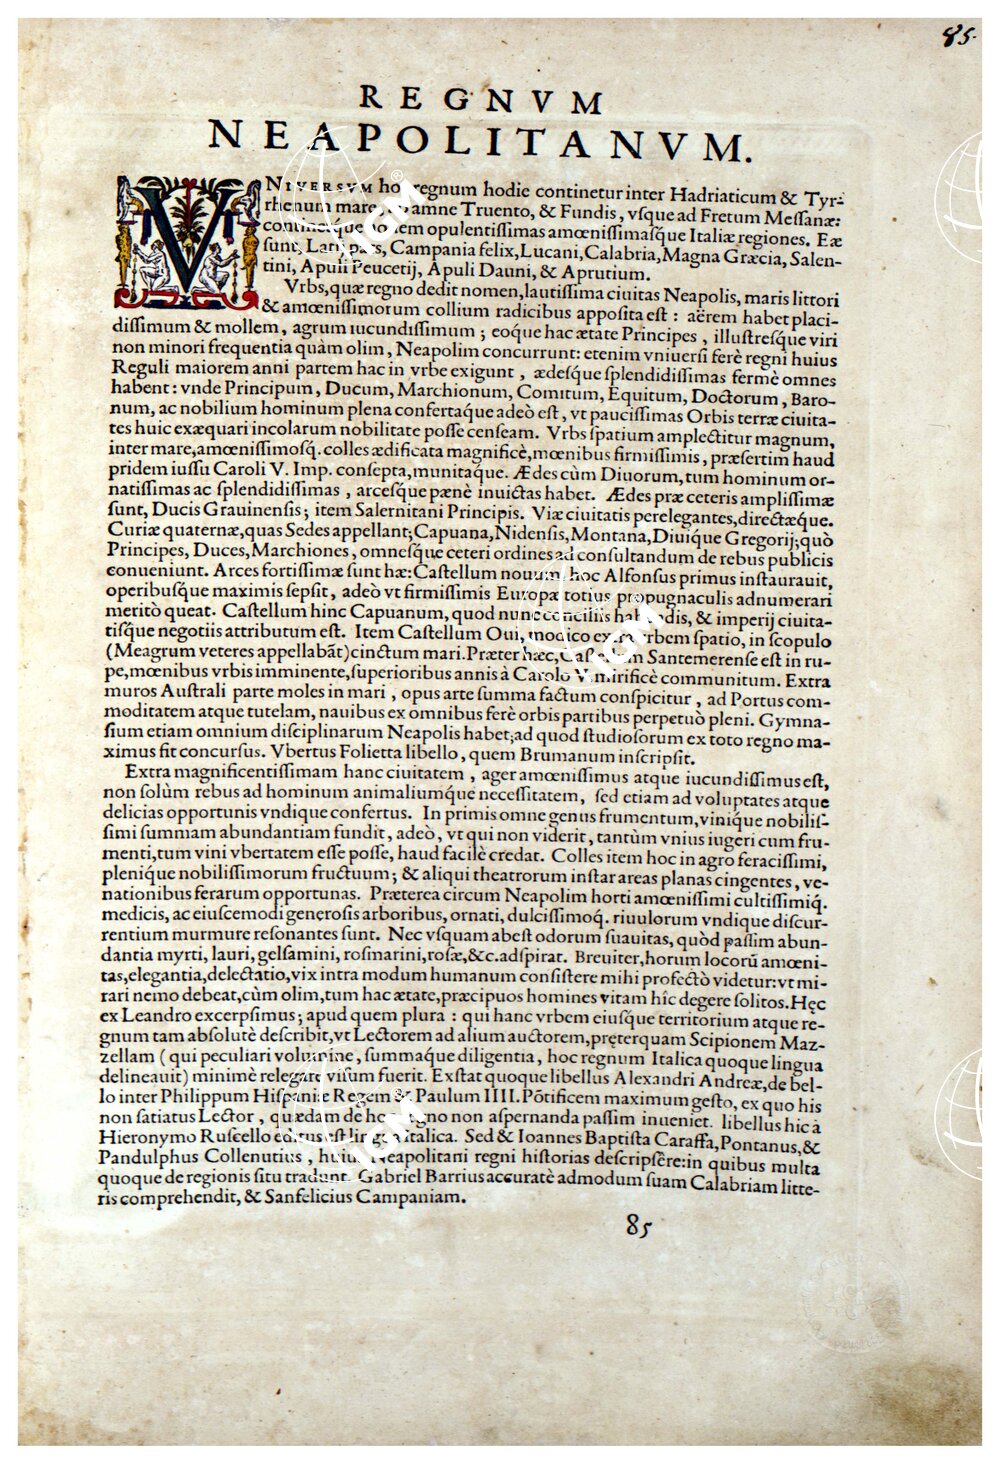 85.
REGNVM
NEAPOLITANVM.
VNIVERSVM hoc regnum hodie continetur inter Hadriaticum & Tyr-
rhenum mare, ab amne Truento, & Fundis, vſque ad Fretum Meſſanæ:
continetque totiem opulentiſſimas amœniſſimaſque Italiæ regiones. Eæ
ſunt, Latij pars, Campania felix, Lucani, Calabria, Magna Græcia, Salen-
tini, Apuli Peucetij, Apuli Dauni, & Aprutium.
Vrbs, quæ regno dedit nomen, lautiſſima ciuitas Neapolis, maris littori
& amœniſſimorum collium radicibus appoſita eſt : aërem habet placi-
diſſimum & mollem, agrum iucundiſſimum ; eoque hac ætate Principes, illuſtreſque viri
non minori frequentia quàm olim, Neapolim concurrunt: etenim vniuerſi ferè regni huius
Reguli maiorem anni partem hac in vrbe exigunt, ædeſque ſplendidiſſimas fermè omnes
habent: vnde Principum, Ducum, Marchionum, Comitum, Equitum, Doctorum, Baro-
num, ac nobilium hominum plena confertaque adeò eſt, vt pauciſſimas Orbis terræ ciuita-
tes huic exæquari incolarum nobilitate poſſe cenſeam. Vrbs ſpatium amplectitur magnum,
inter mare, amœniſſimoſq. colles ædificata magnificè, mœnibus firmiſſimis, præſertim haud
pridem iuſſu Caroli V. Imp. conſepta, munitaque. Ædes cùm Diuorum, tum hominum or-
natiſſimas ac ſplendidiſſimas, arceſque pænè inuictas habet. Ædes præ ceteris ampliſſimæ
ſunt, Ducis Grauinenſis; item Salernitani Principis. Viæ ciuitatis perelegantes, directæque.
Curiæ quaternæ, quas Sedes appellant; Capuana, Nidenſis, Montana, Diuique Gregorij; quò
Principes, Duces, Marchiones, omneſque ceteri ordines ad conſultandum de rebus publicis
conueniunt. Arces fortiſſimæ ſunt hæ: Caſtellum nouum, hoc Alfonſus primus inſtaurauit,
operibuſque maximis ſepſit, adeò vt firmiſſimis Europæ totius propugnaculis adnumerari
meritò queat. Caſtellum hinc Capuanum, quod nunc conciliis habendis, & imperij ciuita-
tiſque negotiis attributum eſt. Item Caſtellum Oui, modico extra vrbem ſpatio, in ſcopulo
(Meagrum veteres appellabãt) cinctum mari. Præter hæc, Caſtellum Santemerenſe eſt in ru-
pe, mœnibus vrbis imminente, ſuperioribus annis à Carolo V. mirificè communitum. Extra
muros Auſtrali parte moles in mari, opus arte ſumma factum conſpicitur, ad Portus com-
moditatem atque tutelam, nauibus ex omnibus ferè orbis partibus perpetuò pleni. Gymna-
ſium etiam omnium diſciplinarum Neapolis habet; ad quod ſtudioſorum ex toto regno ma-
ximus fit concurſus. Vbertus Folietta libello, quem Brumanum inſcripſit.
Extra magnificentiſſimam hanc ciuitatem, ager amœniſſimus atque iucundiſſimus eſt,
non ſolùm rebus ad hominum animaliumque neceſſitatem, ſed etiam ad voluptates atque
delicias opportunis vndique confertus. In primis omne genus frumentum, vinique nobiliſ-
ſimi ſummam abundantiam fundit, adeò, vt qui non viderit, tantùm vnius iugeri cum fru-
menti, tum vini vbertatem eſſe poſſe, haud facilè credat. Colles item hoc in agro feraciſſimi,
plenique nobiliſſimorum fructuum; & aliqui theatrorum inſtar areas planas cingentes, ve-
nationibus ferarum opportunas. Præterea circum Neapolim horti amœniſſimi cultiſſimiq.
medicis, ac eiuſcemodi generoſis arboribus, ornati, dulciſſimoq. riuulorum vndique diſcur-
rentium murmure reſonantes ſunt. Nec vſquam abeſt odorum ſuauitas, quòd paſſim abun-
dantia myrti, lauri, gelſamini, roſmarini, roſæ, &c. adſpirat. Breuiter, horum locorũ amœni-
tas, elegantia, delectatio, vix intra modum humanum conſiſtere mihi profectò videtur: vt mi-
rari nemo debeat, cùm olim, tum hac ætate, præcipuos homines vitam hîc degere ſolitos. Hęc
ex Leandro excerpſimus; apud quem plura : qui hanc vrbem eiuſque territorium atque re-
gnum tam abſolutè deſcribit, vt Lectorem ad alium auctorem, pręterquam Scipionem Maz-
zellam ( qui peculiari volumine, ſummaque diligentia, hoc regnum Italica quoque lingua
delineauit) minimè relegare viſum fuerit. Exſtat quoque libellus Alexandri Andreæ, de bel-
lo inter Philippum Hiſpaniæ Regem & Paulum IIII. Põtificem maximum geſto, ex quo his
non ſatiatus Lector, quædam de hoc regno non aſpernanda paſſim inueniet. libellus hic à
Hieronymo Ruſcello editus eſt lingua Italica. Sed & Ioannes Baptiſta Caraffa, Pontanus, &
Pandulphus Collenutius, huius Neapolitani regni hiſtorias deſcripſêre: in quibus multa
quoque de regionis ſitu tradunt. Gabriel Barrius accuratè admodum ſuam Calabriam litte-
ris comprehendit, & Sanfelicius Campaniam.
85